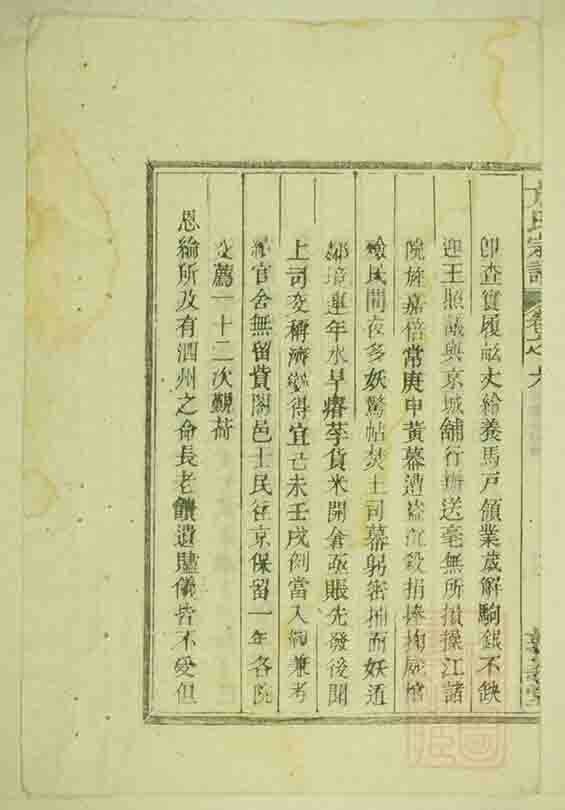 氏宗譜 卷之 六
即查實履畝丈給養馬戶領業歲解駒銀不缺
迎王照議與京城舖行辦送毫無所損操江諸
院旌嘉倍常庚申黃幕遭盜 殺捐俸 
檢民間夜多妖驚帖焚土司幕躬密捕而妖遁
鄰境連年水旱瘠莩貨米開倉亟賑先發後聞
上司交稱濟變得宜己未壬戌例當入 兼考
官舍無留貲闔邑士民往京保留一年各院
交薦一十二次觀荷
恩綸所及有泗州之命長老饋遺贐儀皆不受但